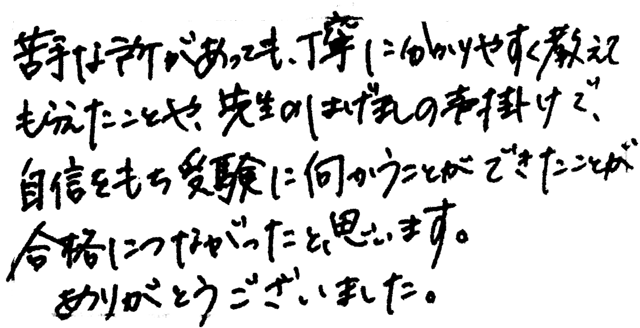 苦手な所があっても、丁寧に分かりやすく教えて
もらえたことや、先生のはげましの声掛けで、
自信をもち受験に向かうことができたことが
合格につながったと思います。
ありがとうございました。